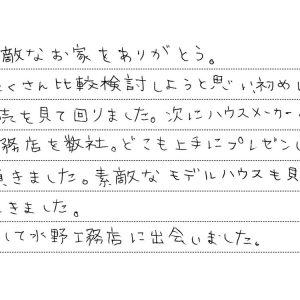 敵なお家をありがとう。
くさん比較検討しようと思い初め
売を見て回りました。次にハウスメーカー
務店を数社。どこも上手にプレゼンし
頂きました。素敵なモデルハウスも見
きました。
して水野工務店に出会いました。